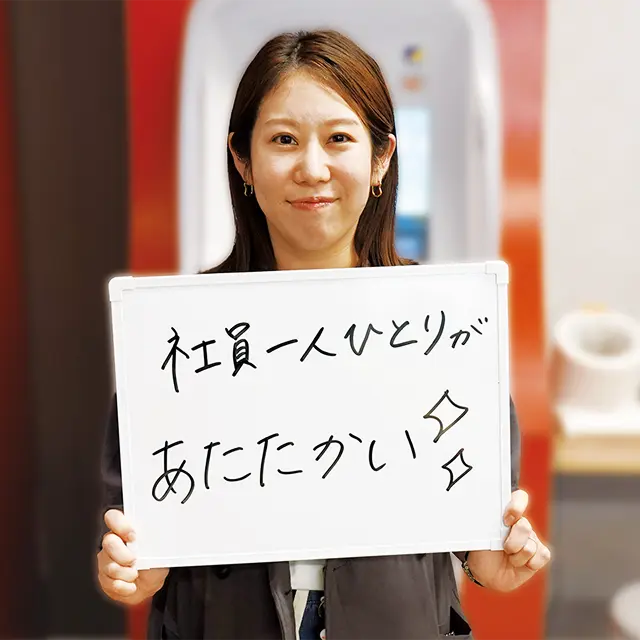 社員一人ひとりが
あたたかい